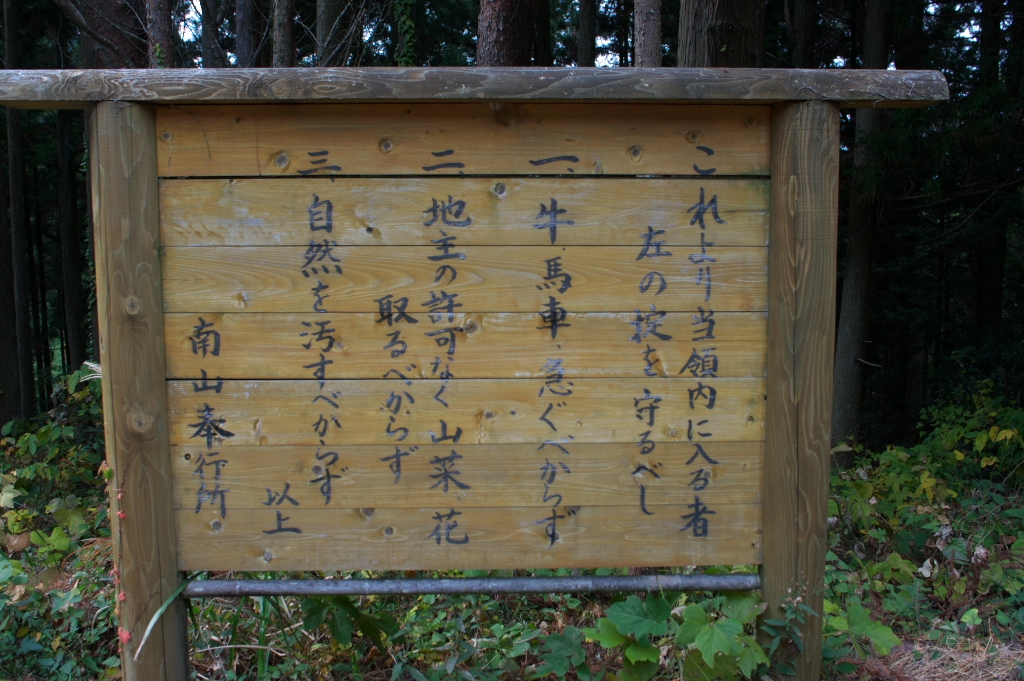 これより当領内に入る者
左の掟を守るべし
一、牛、馬車、急ぐべからず
二、地主の許可なく山菜、花
取るべからず
三、自然を汚すべからず
以上
南山奉行所